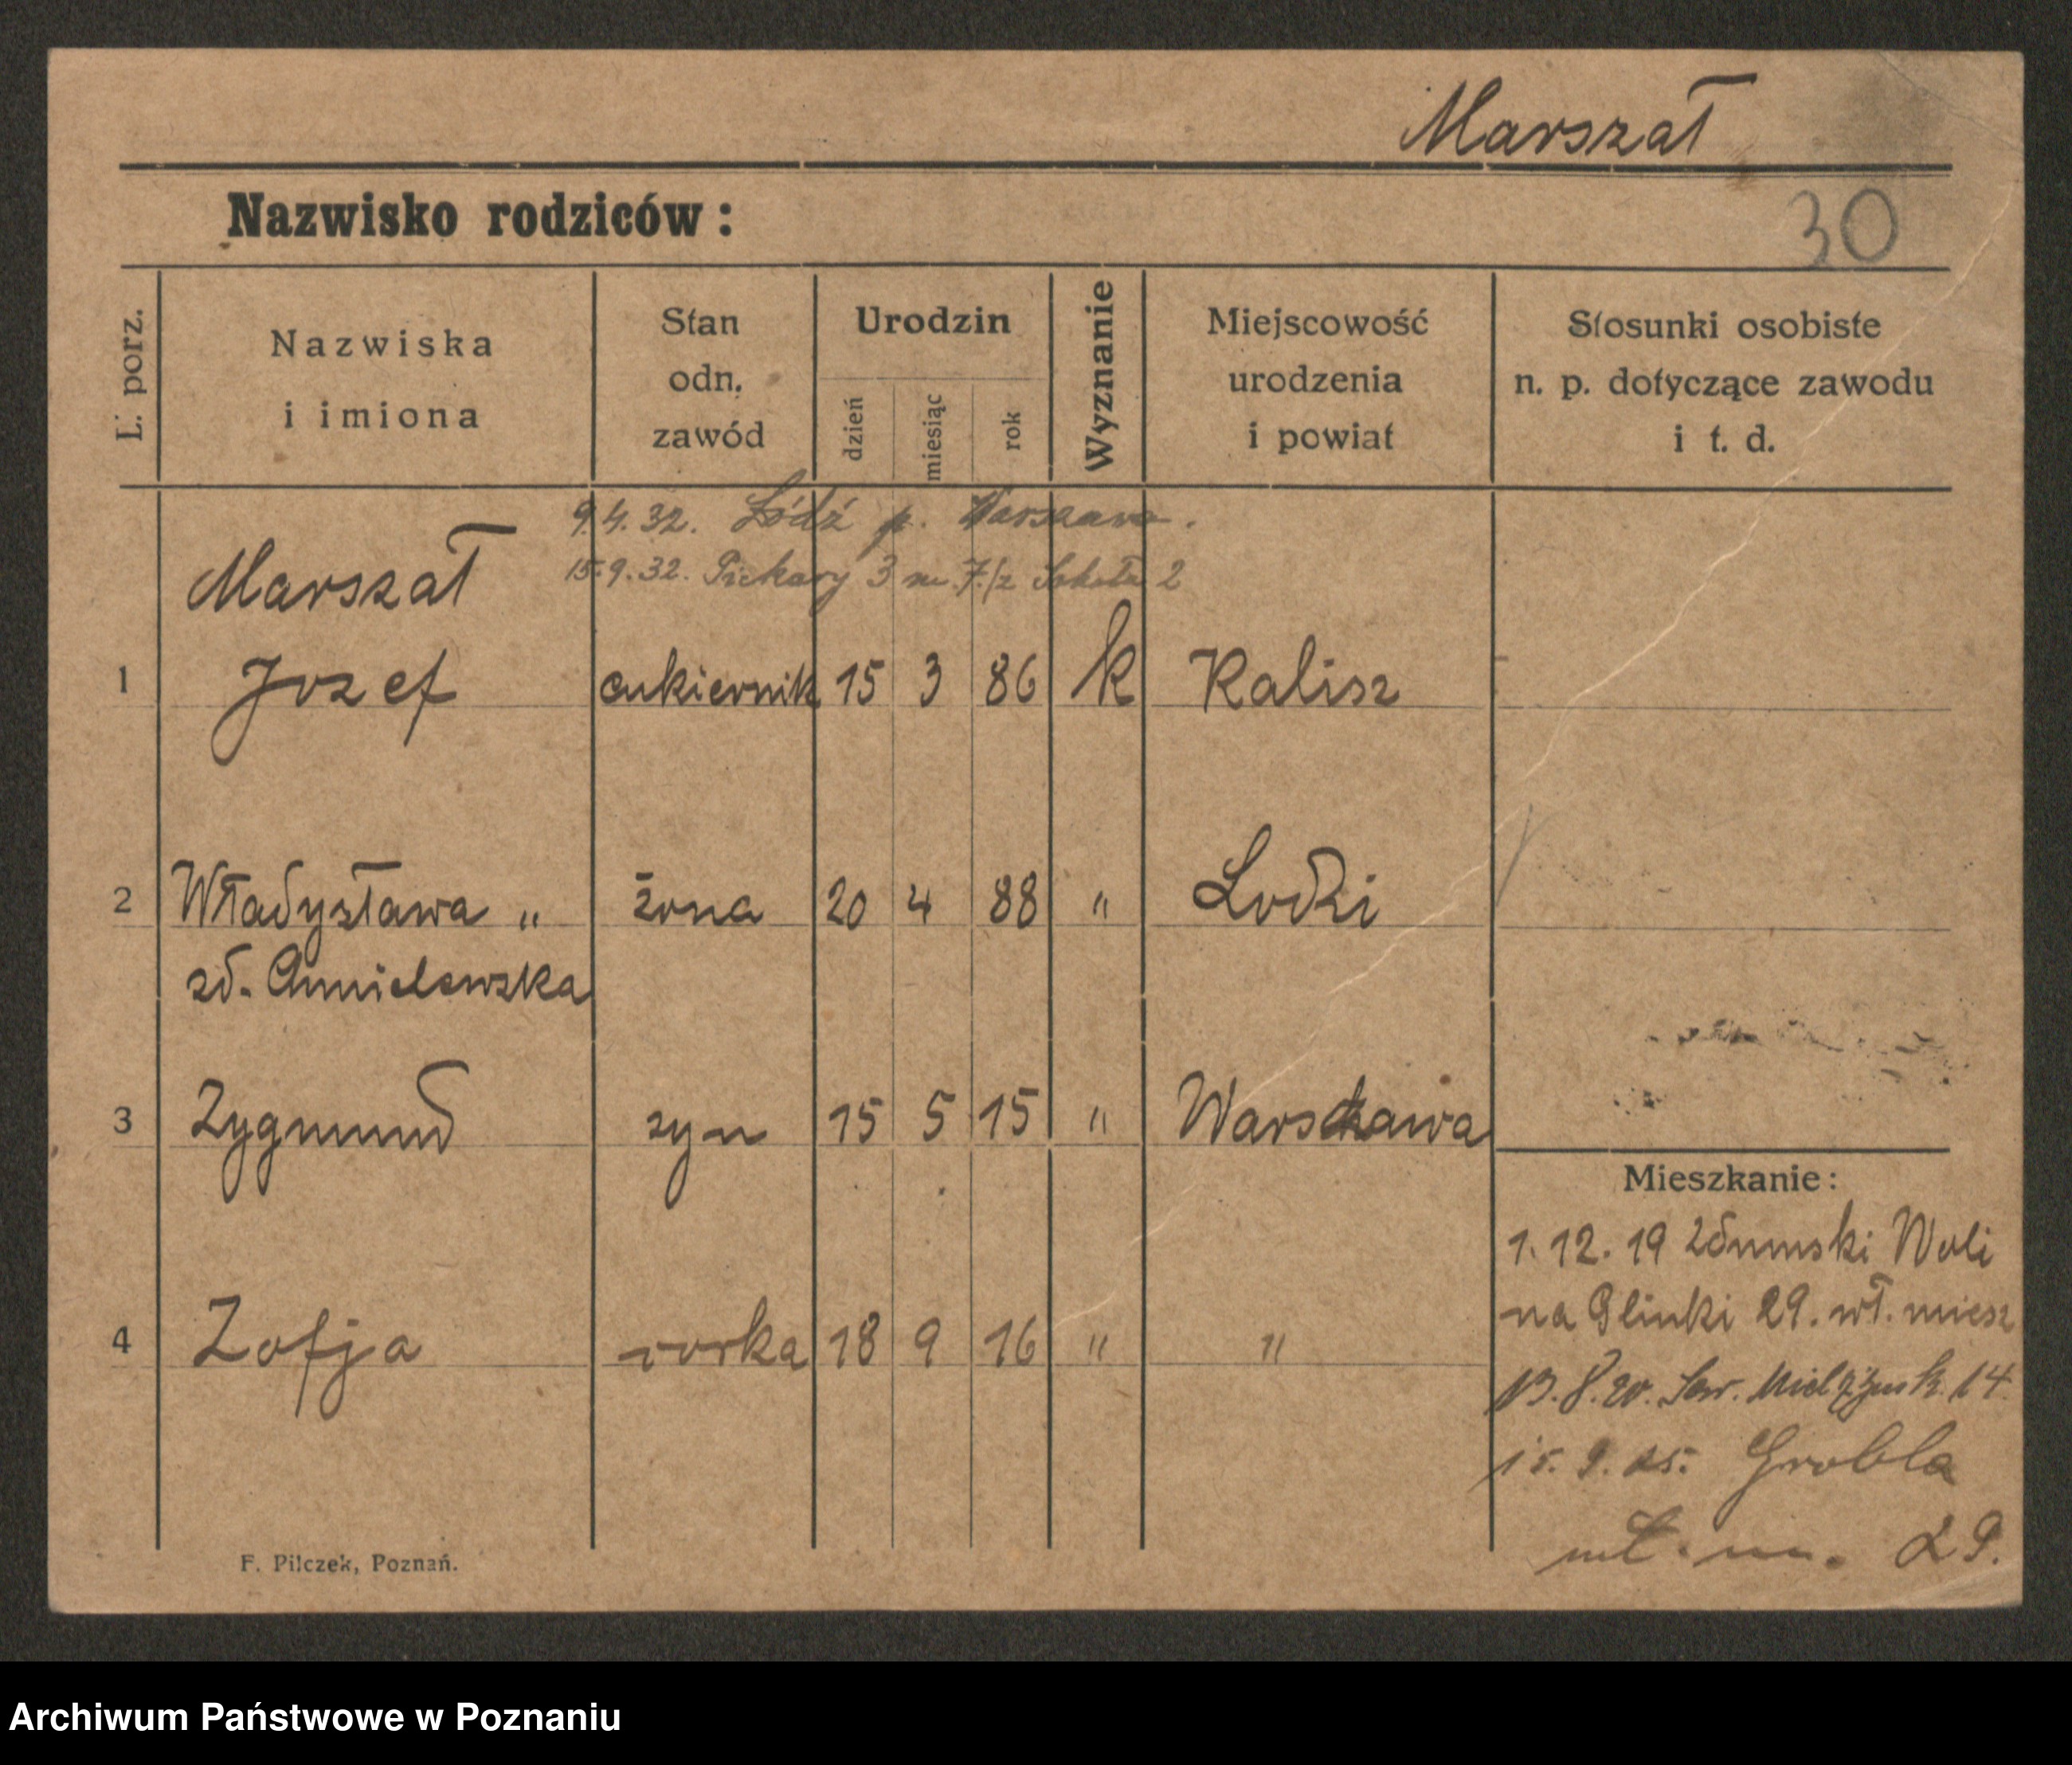 Marszał
Nazwisko rodziców:
30
L. porz.
Nazwiska
i imiona
Stan
odn.
zawód
Urodzin
dzień
miesiąc
rok
Wyznanie
Miejscowość
urodzenia
i powiat
Stosunki osobiste
n. p. dotyczące zawodu
i t. d.
9.4.32. Łódź p. Warszawa.
15.9.32. Piekary 3 m. 7./z Sokoła 2
Marszał
1 Jozef cukiernik 15 3 86 k Kalisz
2 Władysława " żona 20 4 88 " Lodzi
zd. Chmielewska
3 Zygmund syn 15 5 15 " Warszawa
4 Zofja corka 18 9 16 " "
Mieszkanie:
1. 12. 19 Zdunski Woli
na Glinki 29. wł. miesz
13.8.20. Sew. Mielżyńsk. 14
15. 9. 25. Grobla
wł. m. 29.
F. Pilczek, Poznań.
Archiwum Państwowe w Poznaniu